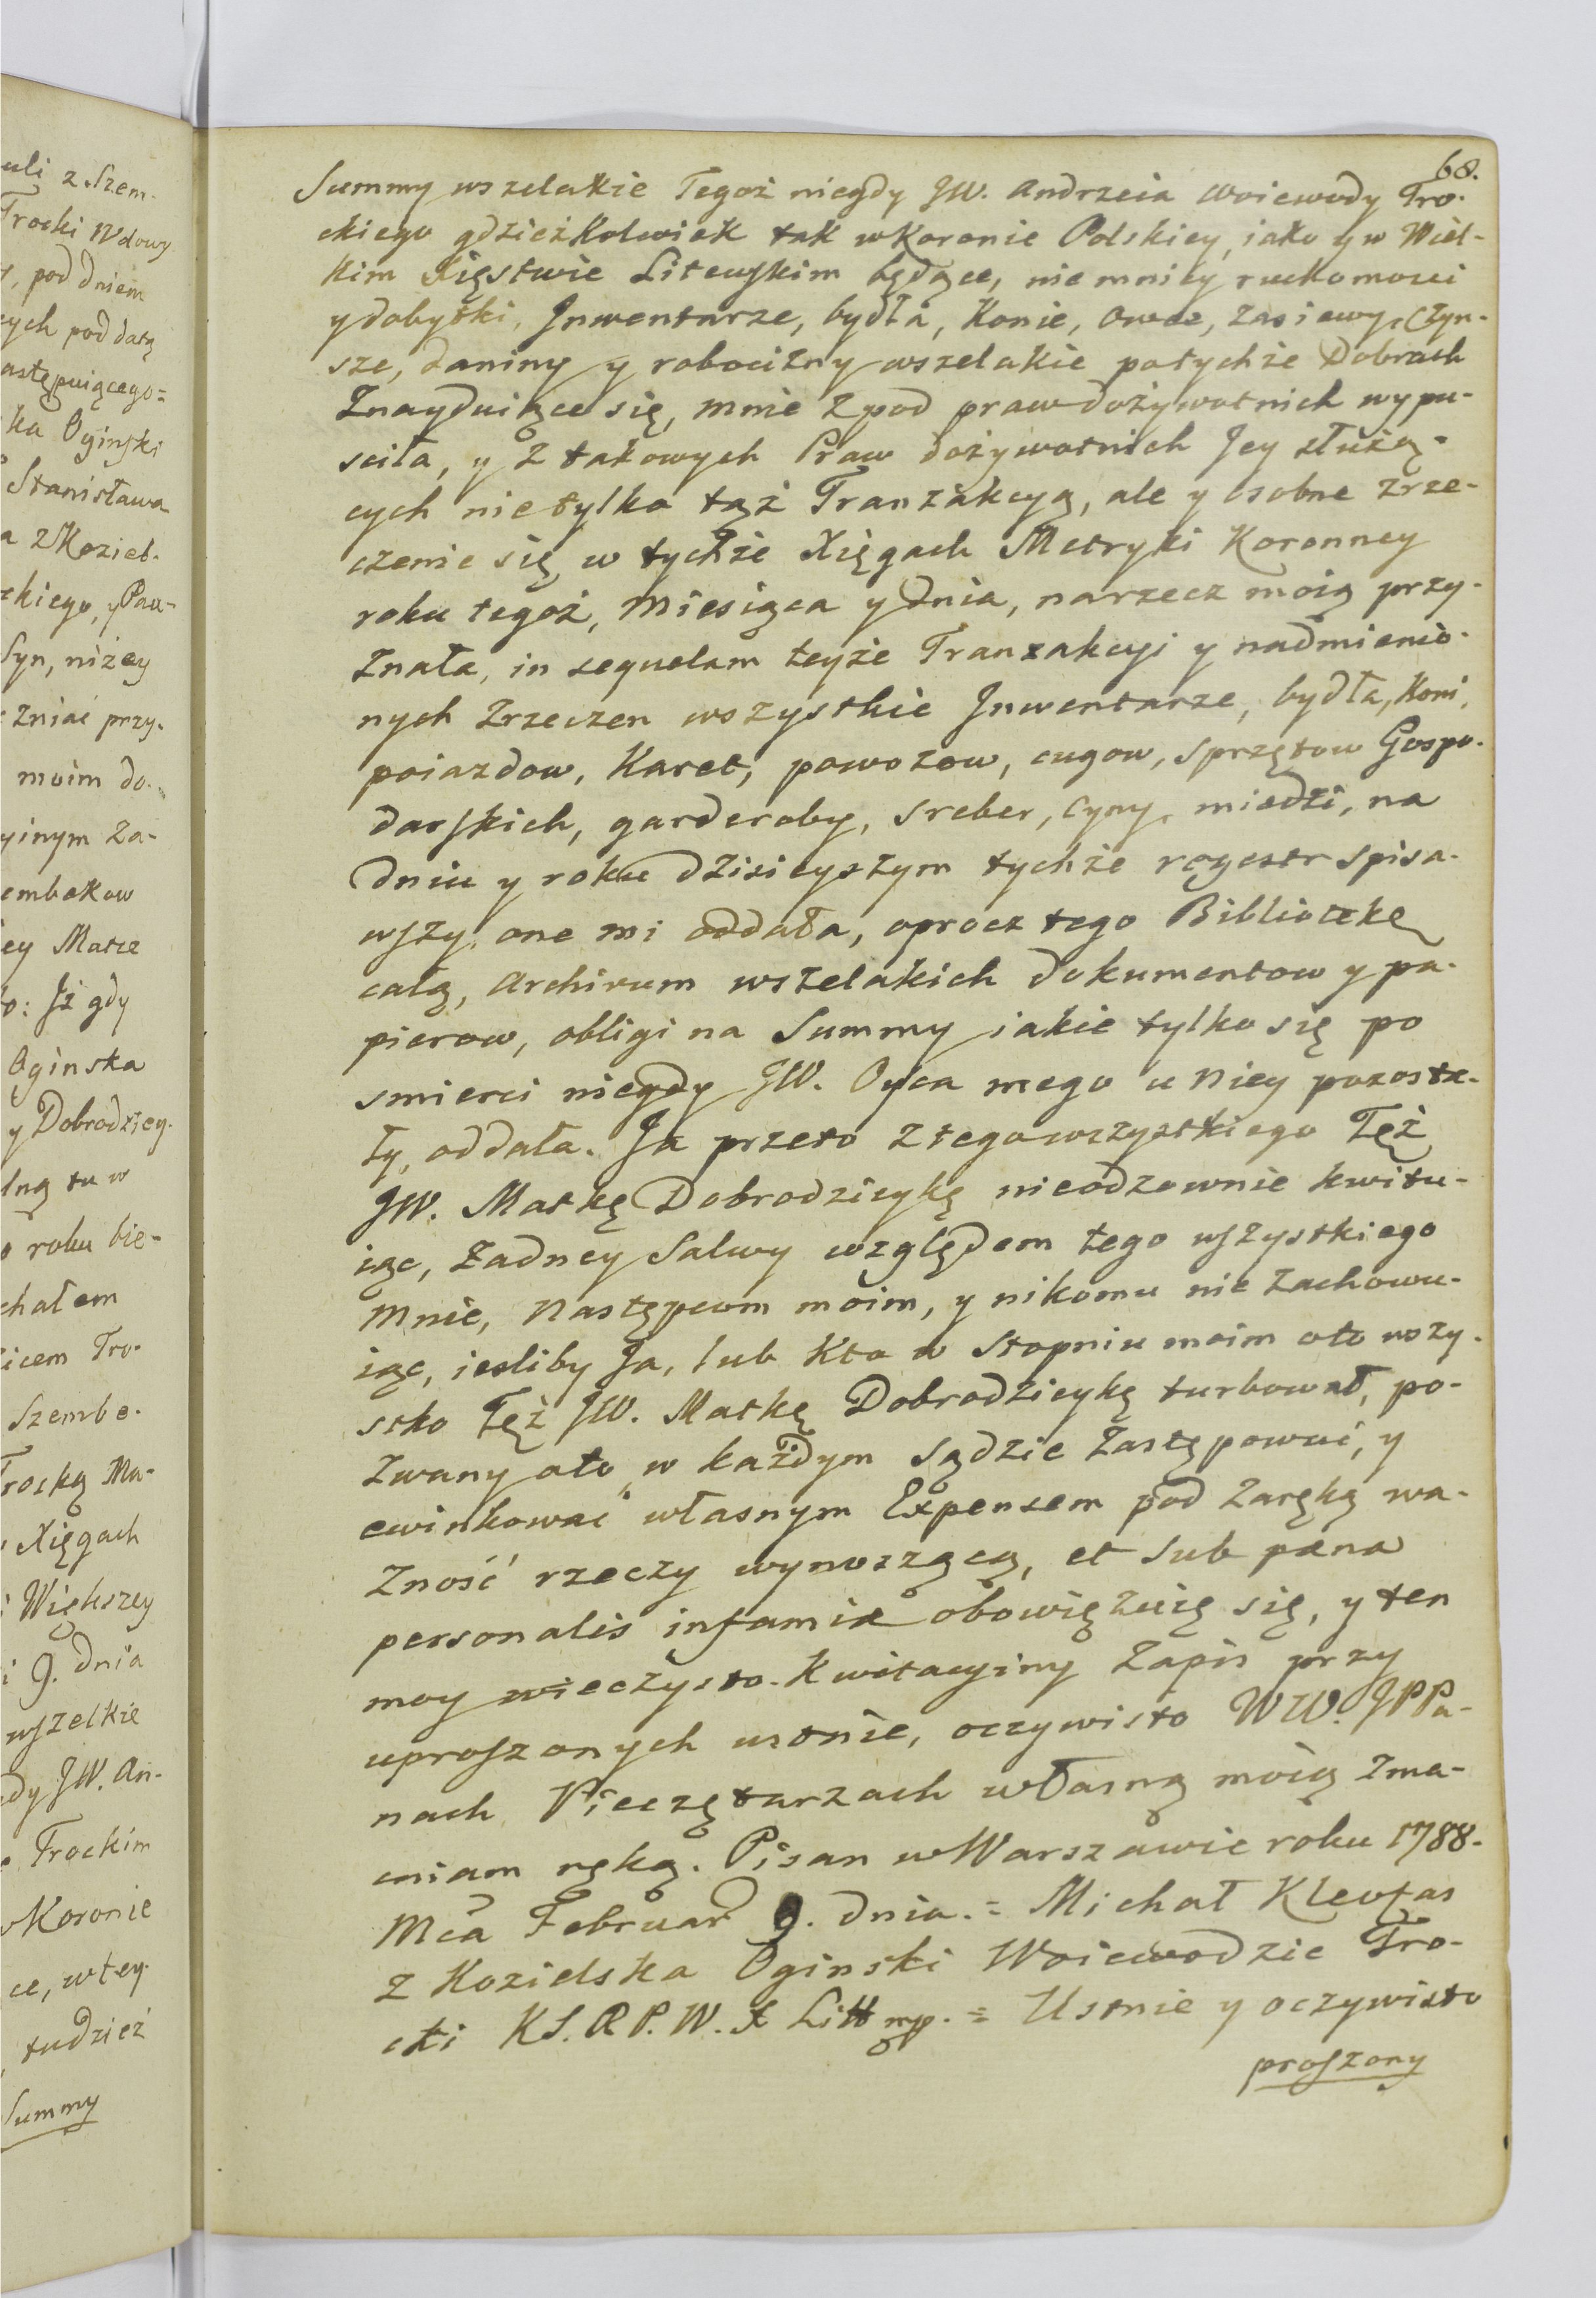 uli z Szem-
Trocki Wdowy
, pod dniem
ych pod datą
astępuiącego=
ka Oginski
Stanisława
a z Koziel-
kiego, y Pau-
Syn, niżey
zniać przy-
moim do-
yinym Za-
embekow
ey Matce
o: Jż gdy
Oginska
y Dobrodziey-
lną tu w
o roku bie-
chałem
icem Tro-
Szembe-
rocką Ma-
Xięgach
i Większey
i 9. dnia
wszelkie
dy JW. An-
e Trockim
w Koronie
ce, w tey-
tudzież
Summy
68.
Summy wszelakie Tegoż niegdy JW. Andrzeia Woiewody Tro-
ckiego gdzieżkolwiek tak w Koronie Polskiey, iako y w Wiel-
kim Xięstwie Litewskim będące, nie mniey ruchomosci
y dobytki, Jnwentarze, bydła, Konie, Owce, Zasiewy, Czyn-
sze, daniny y robocizny wszelakie po tychże Dobrach
Znayduiące się, mnie z pod praw dożywotnich wypu-
sciła, y z takowych Praw dożywotnich Jey służą-
cych nie tylko tąż Tranzakcyą, ale y osobne zrze-
czenie się w tychże Xięgach Metryki Koronney
roku tegoż, Miesiąca y dnia, na rzecz moią przy-
Znała, in sequelam teyże Tranzakcyi y nadmienio-
nych Zrzeczen wszystkie Jnwentarze, bydła, Koni,
poiazdow, Karet, powozow, cugow, sprzętow Gospo-
darskich, garderoby, sreber, Cyny, miedzi, na
dniu y roku dzisieyszym tychże regestr spisa-
wszy, one mi oddała, oprocz tego Bibliotekę
całą, Archivum wszelakich dokumentow y pa-
pierow, obligi na Summy iakie tylko się po
smierci niegdy JW. Oyca mego u Niey pozosta-
ły, oddała. Ja przeto z tego wszystkiego Tęż
JW. Matkę Dobrodzieykę nieodzownie kwitu-
iąc, Żadney Salwy względem tego wszystkiego
Mnie, Następcom moim, y nikomu nie Zachowu-
iąc, iesliby Ja, lub Kto w Stopniu moim oto wszy-
stko Tęż JW. Matkę Dobrodzieykę turbował, po-
Zwany oto w każdym Sądzie Zastępować, y
ewinkować własnym Expensem pod Zaręką wa-
Zność rzeczy wynoszącą, et sub pæna
personalis infamiæ obowięzuię się, y ten
moy wieczysto-Kwitacyiny Zapis przy
uproszonych ustnie, oczywisto WW. JPPa-
nach Pieczętarzach własną moią Zma-
cniam ręką. Pisan w Warszawie roku 1788.
Mca Februar 9. dnia. = Michał Kleofas
z Kozielska Oginski Woiewodzic Tro-
cki KS. RP. W. X Litt mp. = Ustnie y oczywisto
proszony